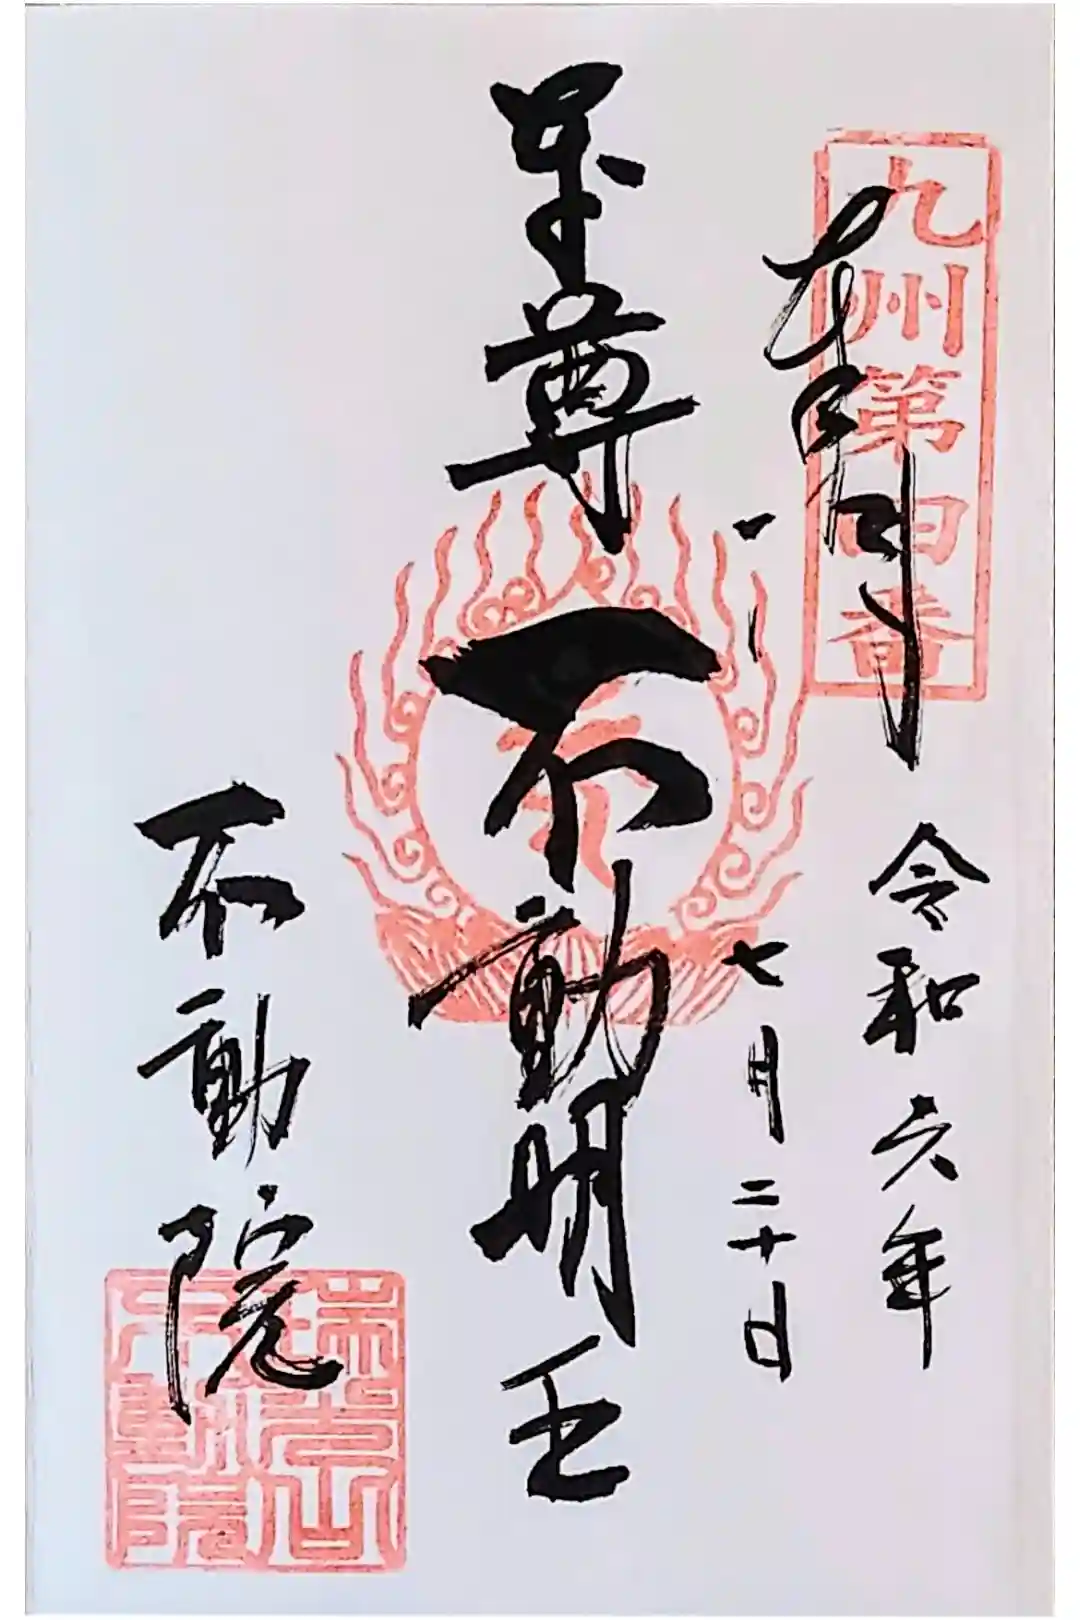 九州第四番
奉拝
令和六年
七月二十日
本尊
不動明王
不動院